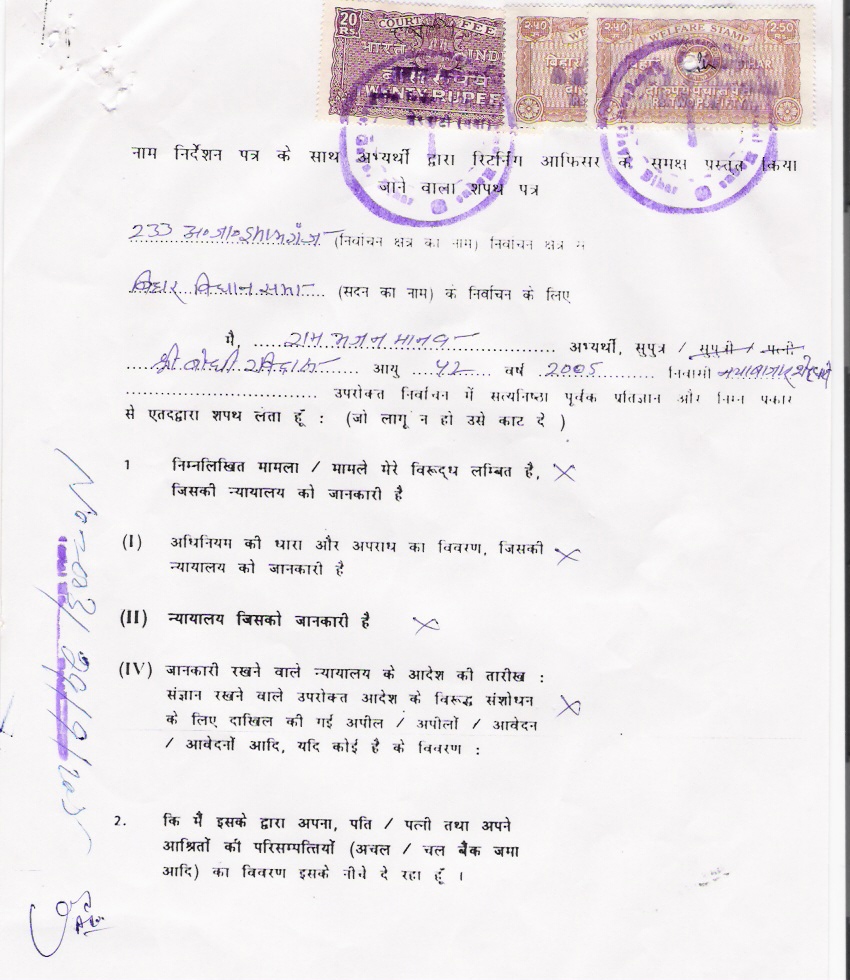 20 COURT FEE
Rs.
भारत INDIA
TWENTY RUPEES
२.५० WELFARE STAMP 2.50
बिहार BIHAR
दो रुपये पचास पैसे
RS.TWO PS.FIFTY
नाम निर्देशन पत्र के साथ अभ्यर्थी द्वारा रिटर्निंग आफिसर के समक्ष पस्तुत किया
जाने वाला शपथ पत्र
233 अ०जा० इमामगंज (निर्वाचन क्षेत्र का नाम) निर्वाचन क्षेत्र से
बिहार विधान सभा (सदन का नाम) के निर्वाचन के लिए
मै, राम भजन मानव अभ्यर्थी, सुपुत्र / सुपुत्री / पत्नी
श्री आयु ५२ वर्ष 2005 निवासी
उपरोक्त निर्वाचन में सत्यनिष्ठा पूर्वक प्रतिज्ञान और निम्न प्रकार
से एतदद्वारा शपथ लेता हूँ : (जो लागू न हो उसे काट दे )
1 निम्नलिखित मामला / मामले मेरे विरूद्ध लम्बित है, X
जिसकी न्यायालय को जानकारी है
(I) अधिनियम की धारा और अपराध का विवरण, जिसकी X
न्यायालय को जानकारी है
(II) न्यायालय जिसको जानकारी है X
(IV) जानकारी रखने वाले न्यायालय के आदेश की तारीख :
संज्ञान रखने वाले उपरोक्त आदेश के विरूद्ध संशोधन X
के लिए दाखिल की गई अपील / अपीलों / आवेदन
/ आवेदनों आदि, यदि कोई है के विवरण :
2. कि मैं इसके द्वारा अपना, पति / पत्नी तथा अपने
आश्रितों की परिसम्पत्तियों (अचल / चल बैंक जमा
आदि) का विवरण इसके नीचे दे रहा हूँ ।